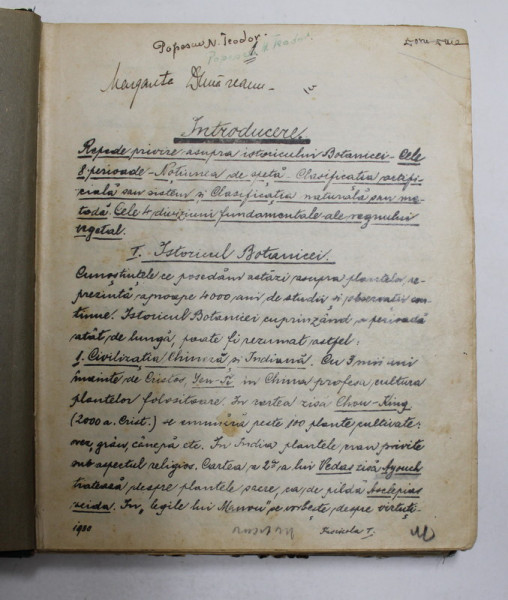 Popescu N. Teodor
5 mii 542
Popescu N Teodor
Margareta Dumitreanu
Introducere.
Repede privire asupra istoricului Botanicei - Cele
8 perioade - Notiunea de spetă. Clasificatia artifi-
cială sau sistem și Clasificatia naturală sau me-
todă. Cele 4 diviziuni fundamentale ale regnului
vegetal.
I. Istoricul Botanicei.
Cunostintele ce posedăm astăzi asupra plantelor re-
prezintă aproape 4000 ani de studii și observatii con-
tinue. Istoricul Botanicei cuprinzând o perioadă
atât de lungă, poate fi rezumat astfel:
1. Civilizatia Chineză și Indiană. Cu 3 mii ani
înainte de Cristos, in China profesa cultura
plantelor folositoare. In cartea zisa Chou-King
(2000 a. Crist.) se enumără peste 100 plante cultivate:
orez, grâu, cânepă etc. In India plantele erau privite
sub aspectul religios. Cartea a 2a a lui Vedas zisă Ayouch
tratează despre plantele sacre, ca de pildă Asclepias
acida. In "legile lui Manou" se vorbeste despre virtuti-
1920
T.